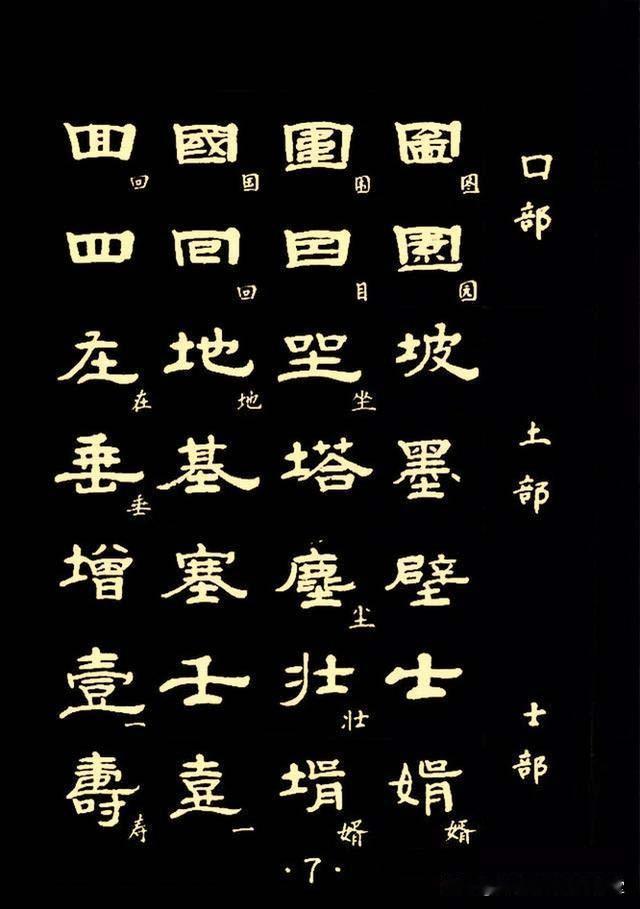 囗部
圖图 圍围 國国 囬回
園园 目 囘回 四
土部
坡 坐坐 地地 在在
墨 塔 基 垂垂
壁 塵尘 塞 增
士部
士 壯壮 壬 壹一
婿 壻婿 壹一 壽寿
·7·